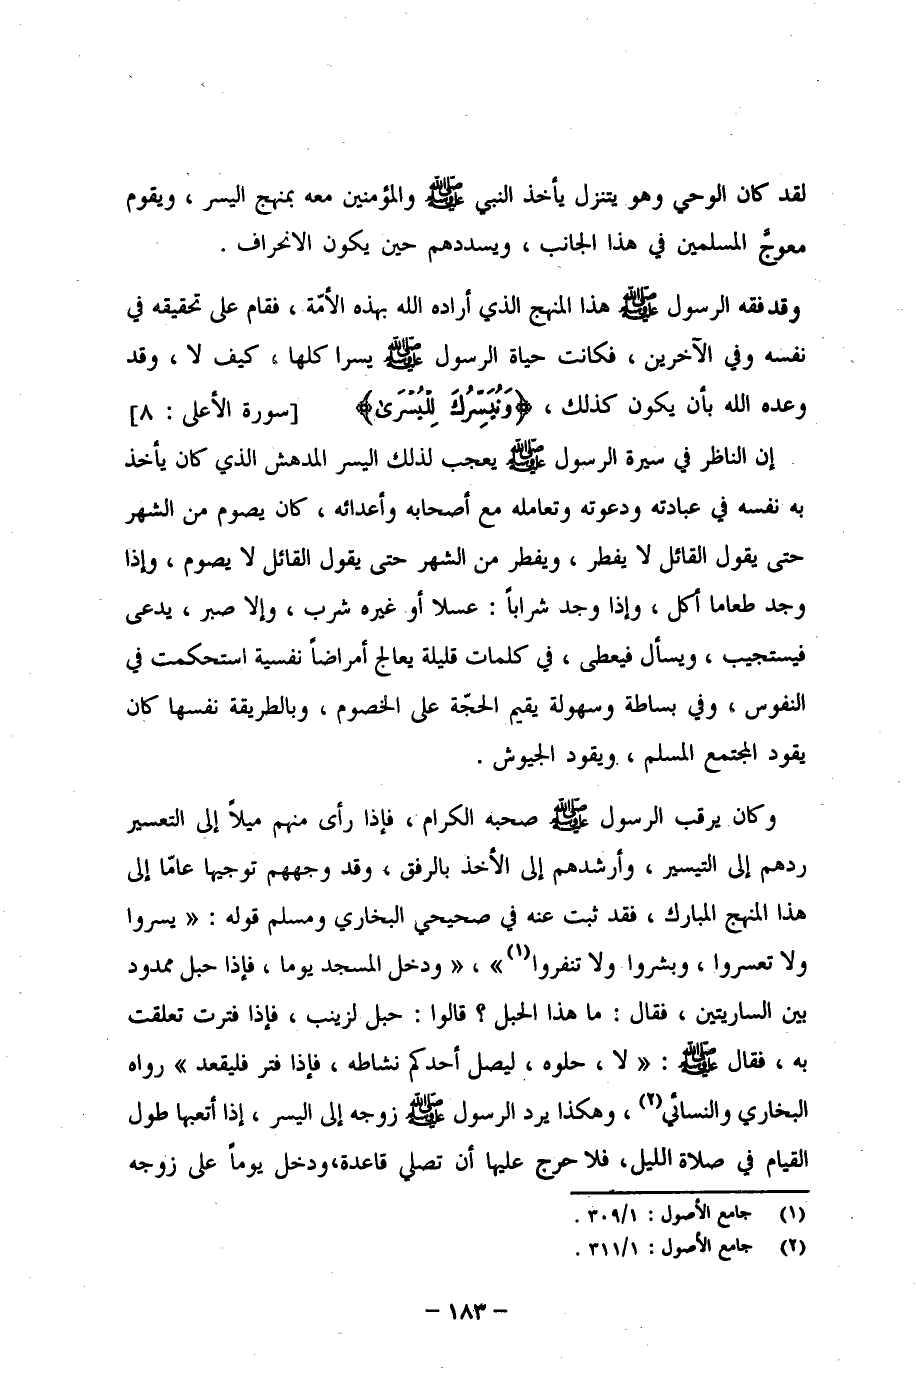 لقد كان الوحي وهو يتنزل يأخذ النبي ﷺ والمؤمنين معه بمنهج اليسر ، ويقوم
معوجَّ المسلمين في هذا الجانب ، ويسددهم حين يكون الانحراف .
وقد فقه الرسول ﷺ هذا المنهج الذي أراده الله بهذه الأمّة ، فقام على تحقيقه في
نفسه وفي الآخرين ، فكانت حياة الرسول ﷺ يسرا كلها ، كيف لا ، وقد
وعده الله بأن يكون كذلك ، ﴿وَنُيَسِّرُكَ لِلْيُسْرَىٰ﴾ [سورة الأعلى : ٨]
إن الناظر في سيرة الرسول ﷺ يعجب لذلك اليسر المدهش الذي كان يأخذ
به نفسه في عبادته ودعوته وتعامله مع أصحابه وأعدائه ، كان يصوم من الشهر
حتى يقول القائل لا يفطر ، ويفطر من الشهر حتى يقول القائل لا يصوم ، وإذا
وجد طعاما أكل ، وإذا وجد شراباً : عسلا أو غيره شرب ، وإلا صبر ، يدعى
فيستجيب ، ويسأل فيعطى ، في كلمات قليلة يعالج أمراضاً نفسية استحكمت في
النفوس ، وفي بساطة وسهولة يقيم الحجّة على الخصوم ، وبالطريقة نفسها كان
يقود المجتمع المسلم ، ويقود الجيوش .
وكان يرقب الرسول ﷺ صحبه الكرام ، فإذا رأى منهم ميلاً إلى التعسير
ردهم إلى التيسير ، وأرشدهم إلى الأخذ بالرفق ، وقد وجههم توجيها عامّا إلى
هذا المنهج المبارك ، فقد ثبت عنه في صحيحي البخاري ومسلم قوله : « يسروا
ولا تعسروا ، وبشروا ولا تنفروا(١)» ، « ودخل المسجد يوما ، فإذا حبل ممدود
بين الساريتين ، فقال : ما هذا الحبل ؟ قالوا : حبل لزينب ، فإذا فترت تعلقت
به ، فقال ﷺ : « لا ، حلوه ، ليصل أحدكم نشاطه ، فإذا فتر فليقعد » رواه
البخاري والنسائي(٢) ، وهكذا يرد الرسول ﷺ زوجه إلى اليسر ، إذا أتعبها طول
القيام في صلاة الليل، فلا حرج عليها أن تصلي قاعدة،ودخل يوماً على زوجه
(١) جامع الأصول : ٣٠٩/١ .
(٢) جامع الأصول : ٣١١/١ .
– ١٨٣ –